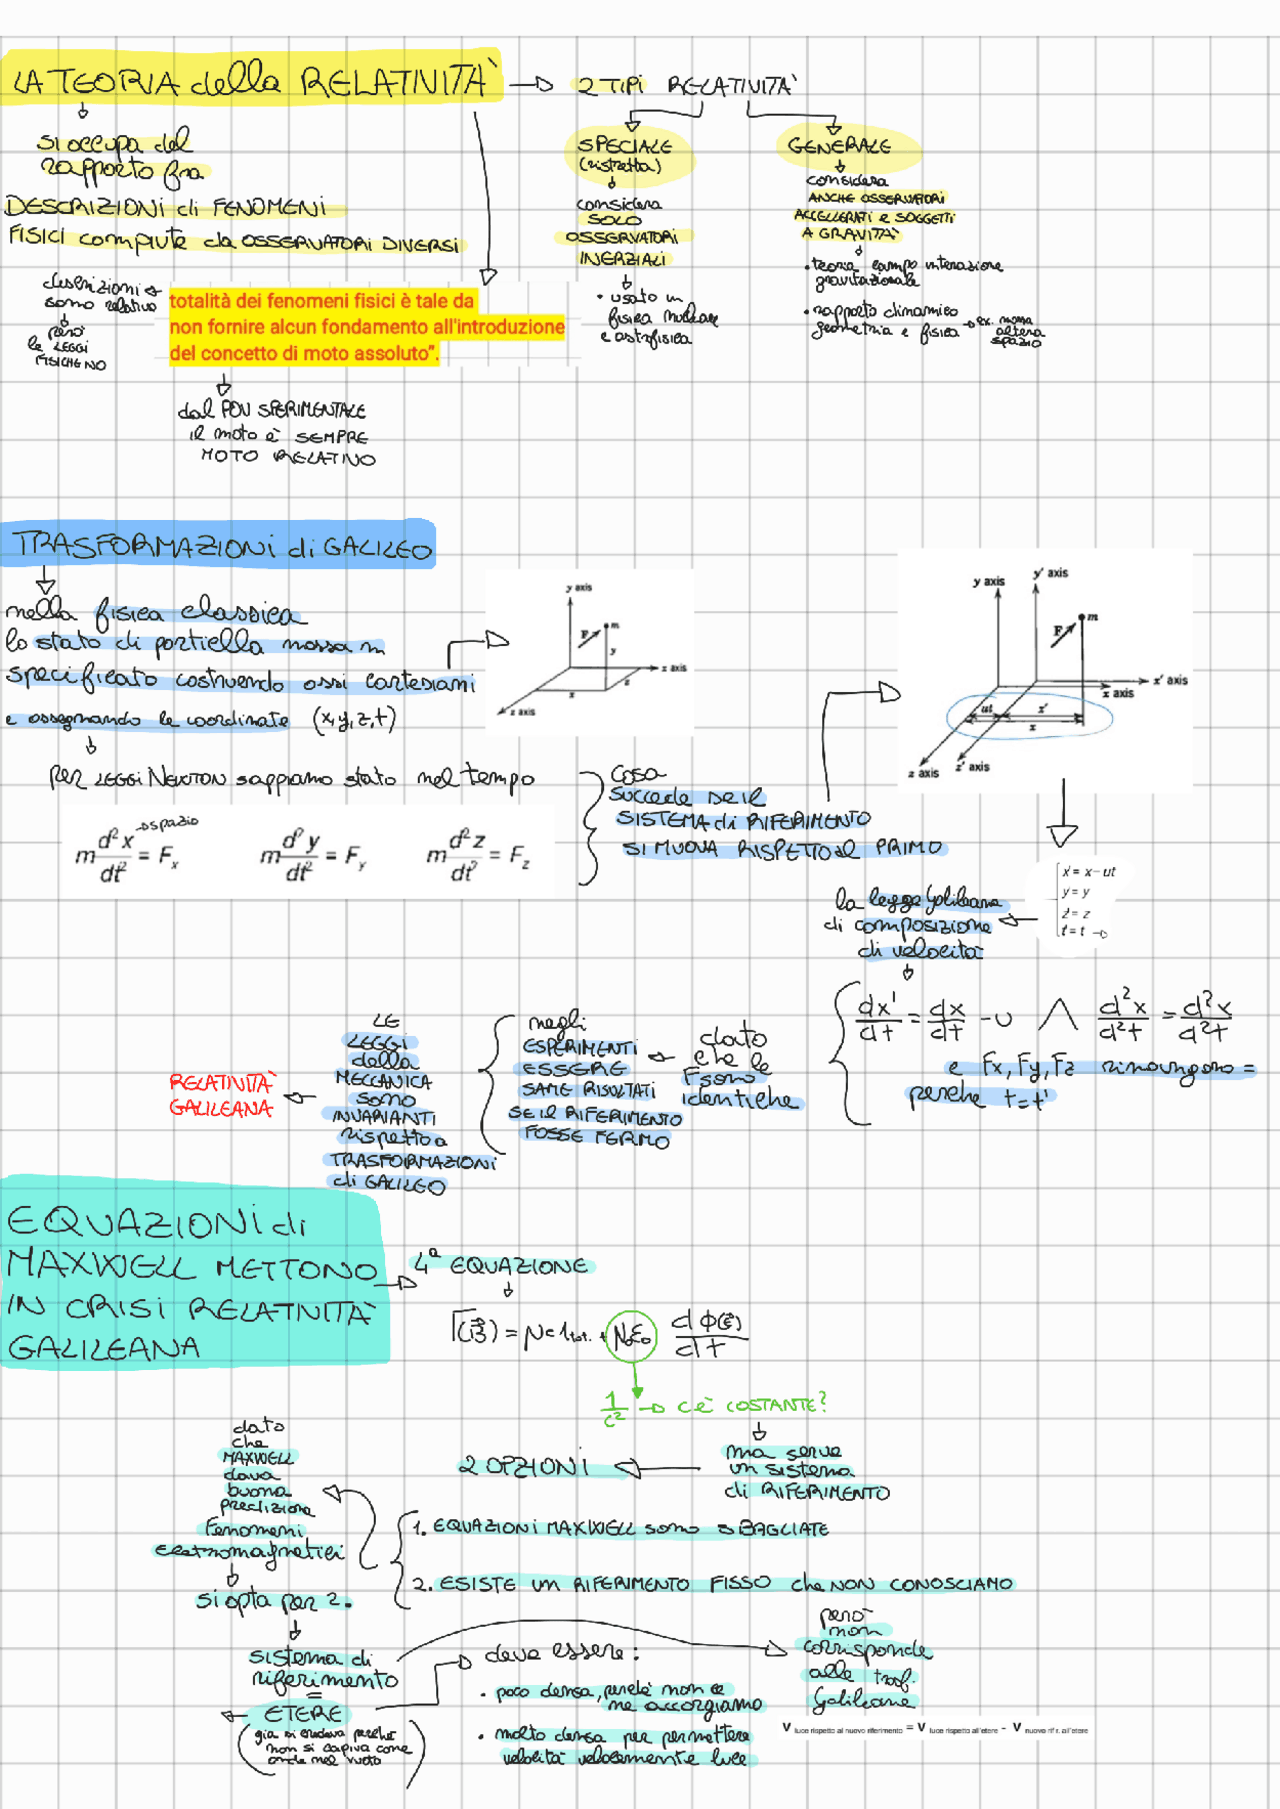 LA TEORIA della RELATIVITÀ → 2 TIPI RELATIVITÀ
si occupa del
rapporto fra
DESCRIZIONI di FENOMENI
FISICI compiute da OSSERVATORI DIVERSI
descrizioni
sono relative
però
le LEGGI
FISICHE NO
totalità dei fenomeni fisici è tale da
non fornire alcun fondamento all'introduzione
del concetto di moto assoluto".
dal POV SPERIMENTALE
il moto è SEMPRE
MOTO RELATIVO
SPECIALE
(ristretta)
considera
SOLO
OSSERVATORI
INERZIALI
• usato in
fisica nucleare
e astrofisica
GENERALE
considera
ANCHE OSSERVATORI
ACCELLERATI e SOGGETTI
A GRAVITÀ
• teoria campo interazione
gravitazionale
• rapporto dinamico
geometria e fisica → ex. massa
altera
spazio
TRASFORMAZIONI di GALILEO
nella fisica classica
lo stato di particella massa m
specificato costruendo assi cartesiani
e assegnando le coordinate (x,y,z,t)
per LEGGI NEWTON sappiamo stato nel tempo
→ spazio
m d²x/dt² = Fx
m d²y/dt² = Fy
m d²z/dt² = Fz
y axis
F
m
y
x axis
x
z
z axis
cosa
succede se il
SISTEMA di RIFERIMENTO
SI MUOVA RISPETTO al PRIMO
y axis
y' axis
F
m
x' axis
x axis
ut
x'
x
z axis
z' axis
x' = x - ut
y' = y
z' = z
t' = t
la legge Galileiana
di composizione
di velocità
dx'/dt = dx/dt - u ∧ d²x/d²t = d²x/d²t
e Fx, Fy, Fz rimangono =
perché t=t'
dato
che le
F sono
identiche
negli
ESPERIMENTI
ESSERE
SAME RISULTATI
SE IL RIFERIMENTO
FOSSE FERMO
LE
LEGGI
della
MECCANICA
sono
INVARIANTI
rispetto a
TRASFORMAZIONI
di GALILEO
RELATIVITÀ
GALILEANA
EQUAZIONI di
MAXWELL METTONO
IN CRISI RELATIVITÀ
GALILEANA
4ª EQUAZIONE
Γ(B) = μ₀ i tot. + μ₀ε₀ dΦ(E)/dt
1/c² → c è COSTANTE?
ma serve
un sistema
di RIFERIMENTO
2 OPZIONI
1. EQUAZIONI MAXWELL sono SBAGLIATE
2. ESISTE un RIFERIMENTO FISSO che NON CONOSCIAMO
dato
che
MAXWELL
dava
buona
predizione
Fenomeni
elettromagnetici
si opta per 2.
sistema di
riferimento
=
ETERE
(già si credeva perché
non si capiva come
onde nel vuoto)
deve essere:
• poco densa, perché non ce
ne accorgiamo
• molto densa per permettere
velocità velocemente luce
però
non
corrisponde
alle trasf.
Galileiane
V luce rispetto al nuovo riferimento = V luce rispetto all'etere - V nuovo rif r. all'etere